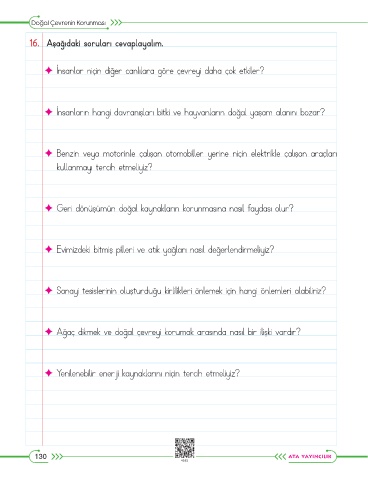 Doğal Çevrenin Korunması
16. Aşağıdaki soruları cevaplayalım.
İnsanlar niçin diğer canlılara göre çevreyi daha çok etkiler?
İnsanların hangi davranışları bitki ve hayvanların doğal yaşam alanını bozar?
Benzin veya motorinle çalışan otomobiller yerine niçin elektrikle çalışan araçları
kullanmayı tercih etmeliyiz?
Geri dönüşümün doğal kaynakların korunmasına nasıl faydası olur?
Evimizdeki bitmiş pilleri ve atık yağları nasıl değerlendirmeliyiz?
Sanayi tesislerinin oluşturduğu kirlilikleri önlemek için hangi önlemleri alabiliriz?
Ağaç dikmek ve doğal çevreyi korumak arasında nasıl bir ilişki vardır?
Yenilenebilir enerji kaynaklarını niçin tercih etmeliyiz?
130
ATA YAYINCILIK